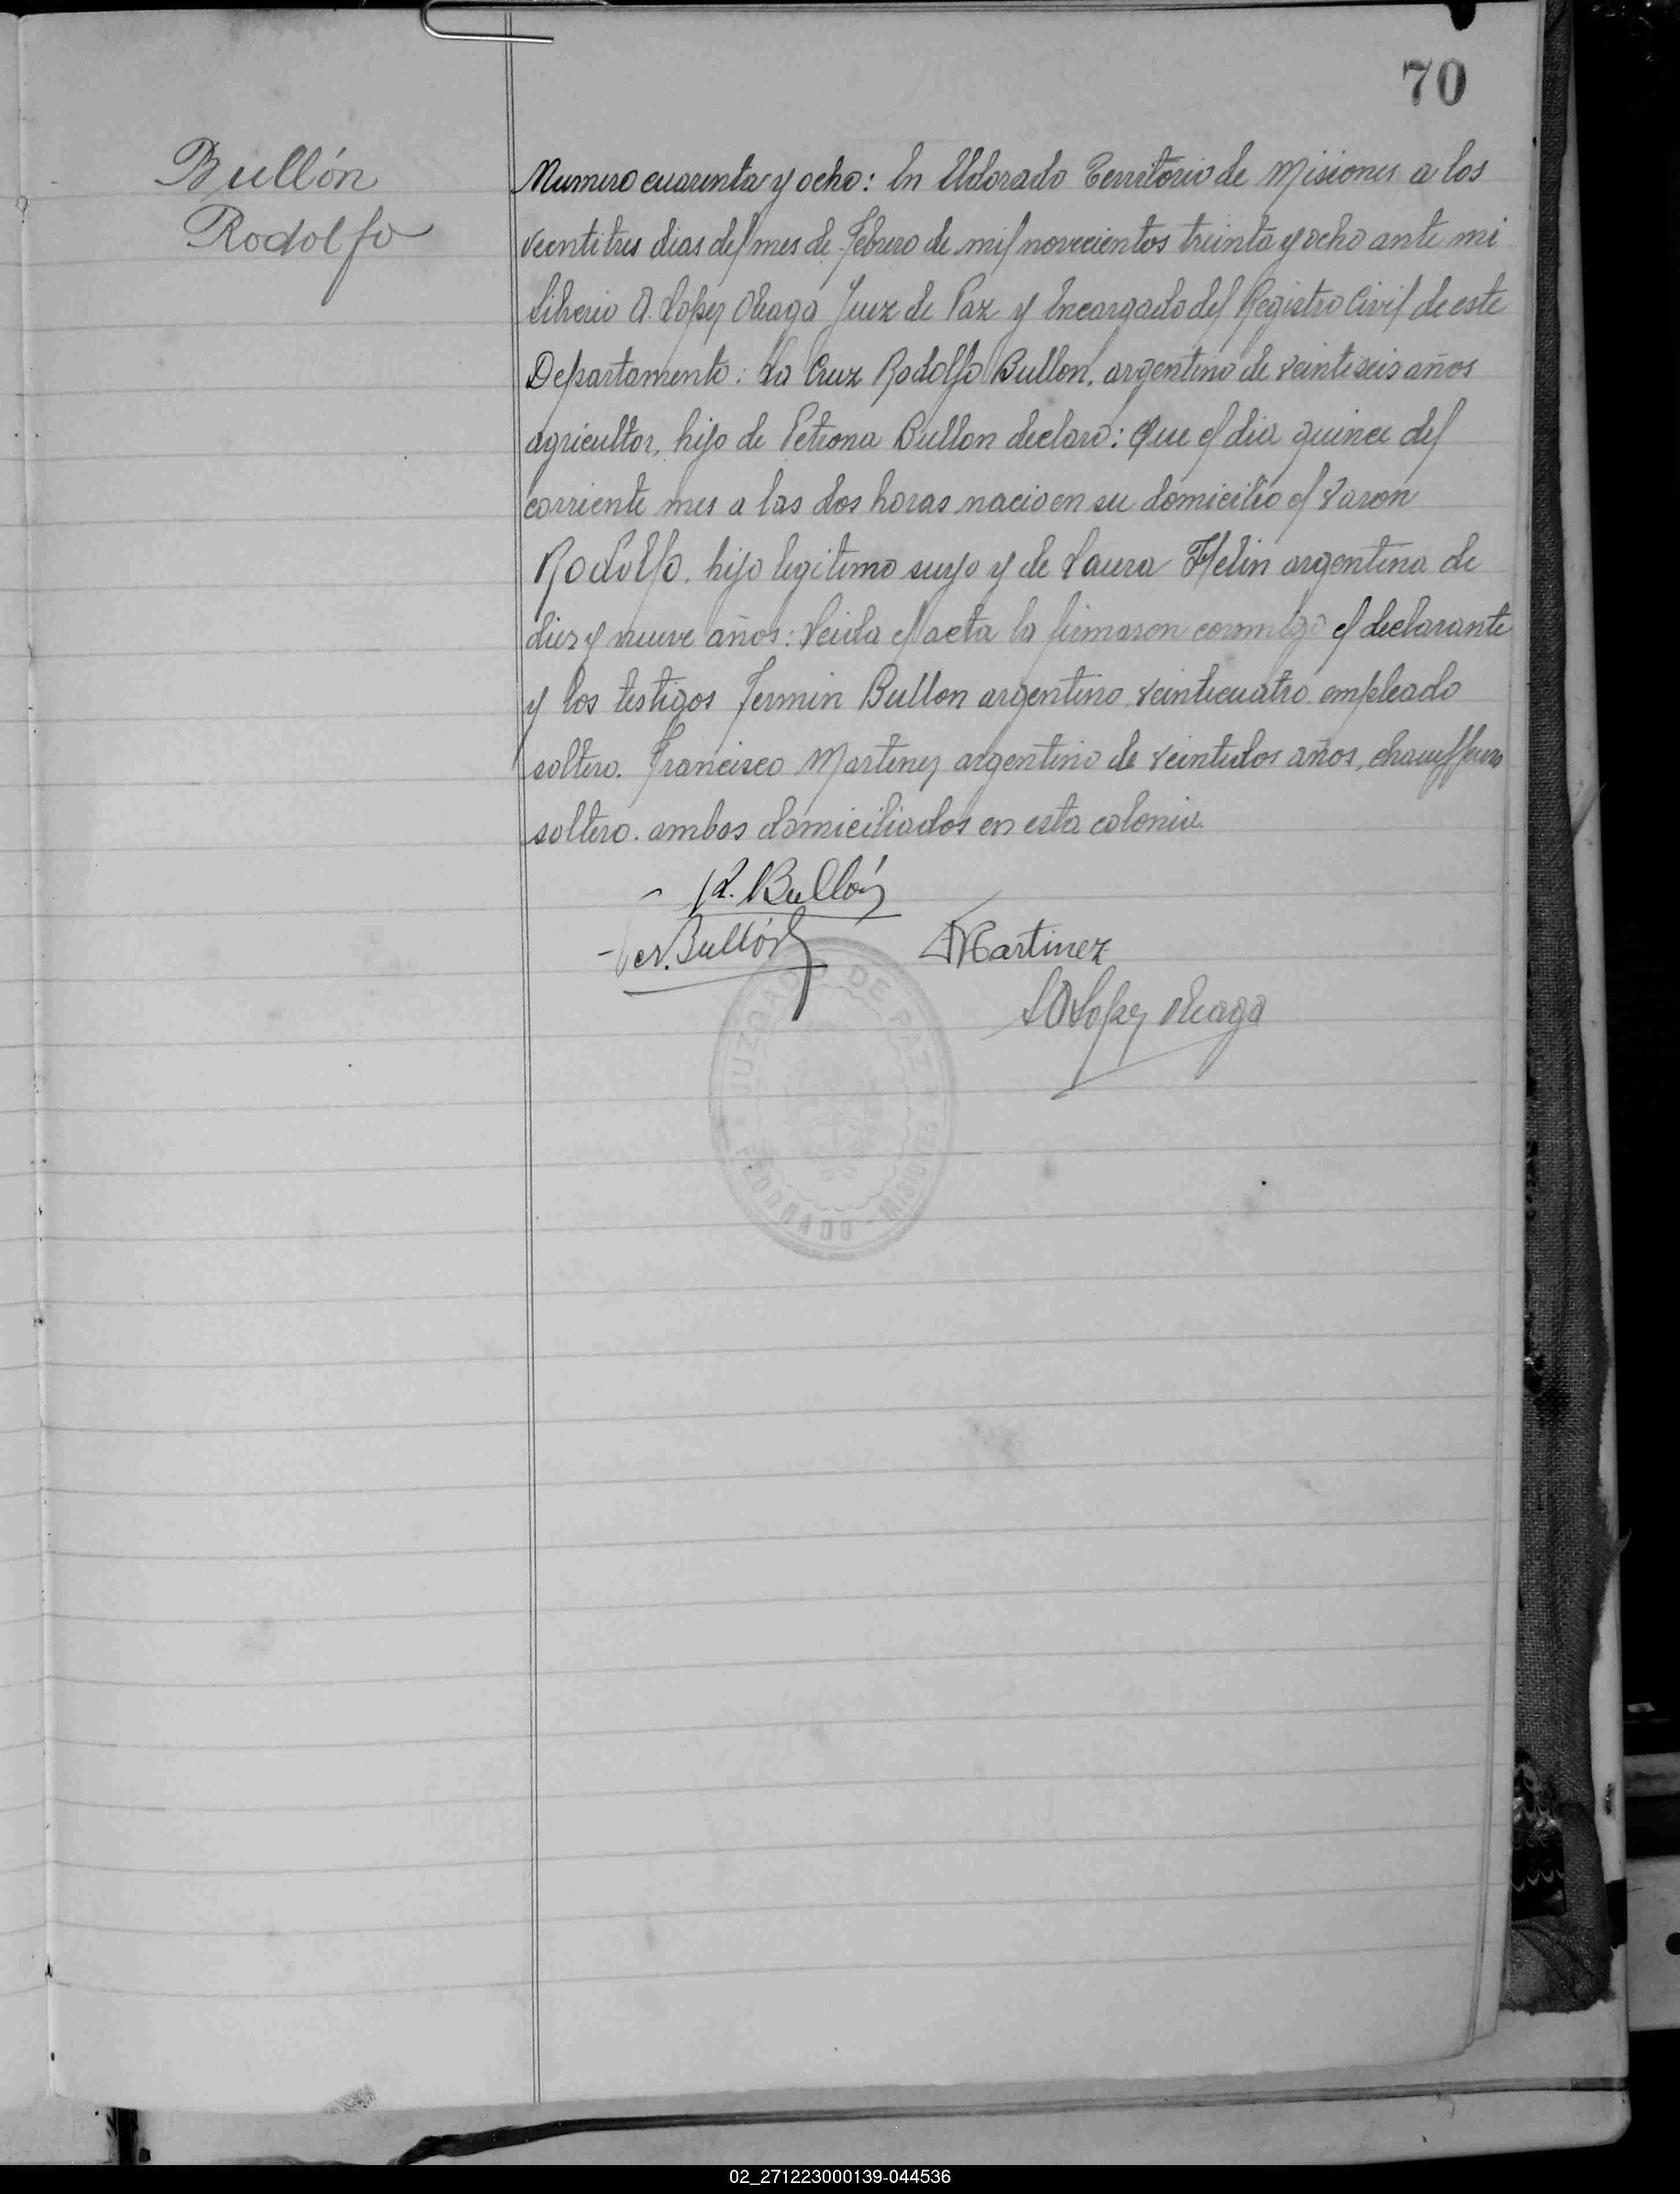 70
Bullón
Rodolfo
Numero cuarenta y ocho: En Eldorado Territorio de Misiones a los
veintitres dias del mes de Febrero de mil novecientos treinta y ocho ante mi
Liberio A. Lopez Oleaga Juez de Paz y Encargado del Registro Civil de este
Departamento: La Cruz Rodolfo Bullon, argentino de veintiseis años
agricultor, hijo de Petrona Bullon declaro: Que el dia quince del
corriente mes a las dos horas nacio en su domicilio el varon
Rodolfo. hijo legitimo suyo y de Laura argentina de
diez y nueve años: Leida el acta la firmaron conmigo el declarante
y los testigos Fermin Bullon argentino veinticuatro empleado
soltero. Francisco Martinez argentino de veintidos años, chauffeur
soltero. ambos domiciliados en esta colonia.
R. Bullón
Bullón
FMartinez
LALopez Oleaga
JUZGADO DE PAZ
ELDORADO - MISIONES
02_271223000139-044536